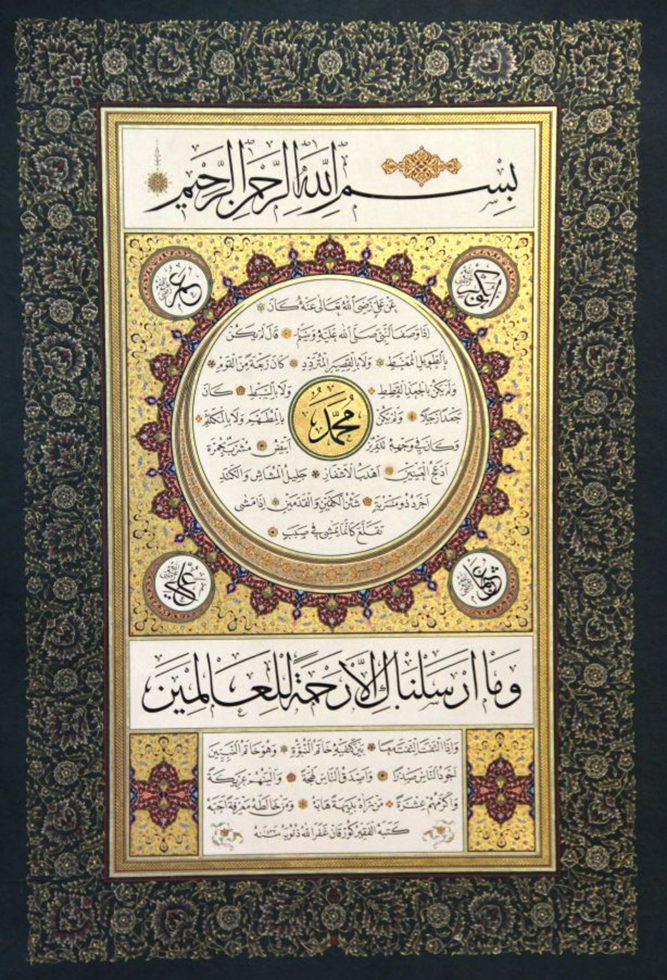 بِسْمِ اللهِ الرَّحْمٰنِ الرَّحِيمِ
ابوبكر
عمر
عَنْ عَلِيٍّ رَضِيَ اللهُ تَعَالٰى عَنْهُ كَانَ
إِذَا وَصَفَ النَّبِيَّ صَلَّى اللهُ عَلَيْهِ وَسَلَّمَ قَالَ لَمْ يَكُنْ
بِالطَّوِيلِ الْمُمَغَّطِ وَلَا بِالْقَصِيرِ الْمُتَرَدِّدِ كَانَ رَبْعَةً مِنَ الْقَوْمِ
وَلَمْ يَكُنْ بِالْجَعْدِ الْقَطَطِ وَلَا بِالسَّبِطِ كَانَ
جَعْدًا رَجِلًا وَلَمْ يَكُنْ بِالْمُطَهَّمِ وَلَا بِالْمُكَلْثَمِ
مُحَمَّد
وَكَانَ فِي وَجْهِهِ تَدْوِيرٌ أَبْيَضُ مُشْرَبٌ بِحُمْرَةٍ
أَدْعَجُ الْعَيْنَيْنِ أَهْدَبُ الْأَشْفَارِ جَلِيلُ الْمُشَاشِ وَالْكَتَدِ
أَجْرَدُ ذُو مَسْرُبَةٍ شَثْنُ الْكَفَّيْنِ وَالْقَدَمَيْنِ إِذَا مَشٰى
تَقَلَّعَ كَأَنَّمَا يَمْشِي فِي صَبَبٍ
عثمان
علي
وَمَا أَرْسَلْنَاكَ إِلَّا رَحْمَةً لِلْعَالَمِينَ
وَإِذَا الْتَفَتَ الْتَفَتَ مَعًا بَيْنَ كَتِفَيْهِ خَاتَمُ النُّبُوَّةِ وَهُوَ خَاتَمُ النَّبِيِّينَ
أَجْوَدُ النَّاسِ صَدْرًا وَأَصْدَقُ النَّاسِ لَهْجَةً وَأَلْيَنُهُمْ عَرِيكَةً
وَأَكْرَمُهُمْ عِشْرَةً مَنْ رَآهُ بَدِيهَةً هَابَهُ وَمَنْ خَالَطَهُ مَعْرِفَةً أَحَبَّهُ
كتبه الفقير غفر الله ذنوبه